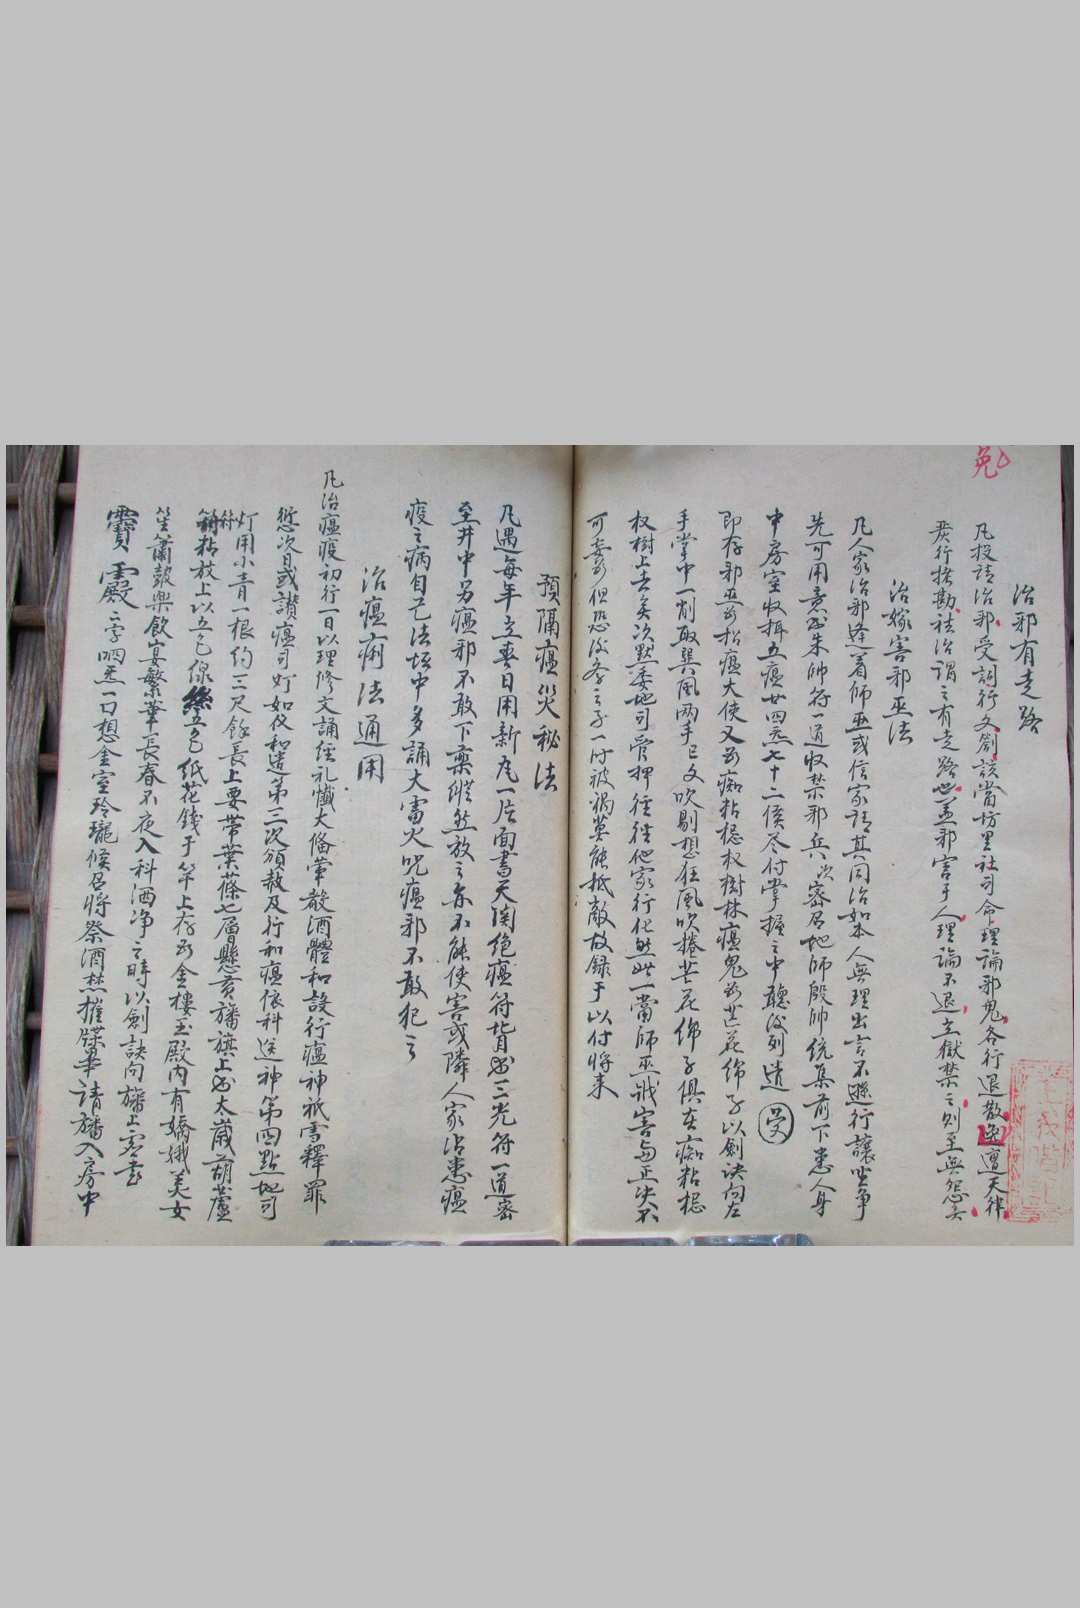 免
治邪有走路
凡投請治邪受詞行文劄該當坊里社司命理論邪鬼各行退散免遭天律
君行搭勘祛治謂之有走路也盖邪害于人理論不退立獄禁之則至無怨矣
治嫁害邪巫法
凡人家治邪逢着師巫或信家請其同治如本人無理出言不遜行讓
先可用意書朱帥符一道收禁邪兵次密召地師殷帥統集前下患人身
中房室收捐五瘟廿四炁七十二候尽付掌握之中聽後列遣
即存邪巫為招瘟大使又為痴粘樹林瘟鬼為芒花綿子以劍訣向左
手掌中一削取巽風两手已文吹剔想狂風吹捲芒花綿子俱在痴粘
樹上去矣次默委地司管押徑往他家行化無此一當師巫戕害正决不
可妄為但恐後客之子一时被禍莫能抵敵故録于以付將来
預隔瘟災秘法
凡遇每年立春日用新瓦一片面書天関絶瘟符背書三光符一道密
至井中另瘟邪不敢下藥縱然放之亦不能使害或隣人家沾患瘟
疫之病自己法坛中多誦大雷火咒瘟邪不敢犯之
治瘟痢法通用
凡治瘟疫初行一日以理修文誦經礼懺大俻葷散酒醴和設行瘟神祇雪釋罪
愆次日或讃瘟司灯如仪和遣第三次頒赦及行和瘟依科送神第四點地司
灯用小青一根約三尺餘長上要帶葉蓧七層懸黄旛旗上書太歲葫蘆
符粘放上以五色線五色紙花錢于竿上存為金樓玉殿内有嬌娥美女
笙簫鼓樂飲宴繁華長春不夜入科酒净之時以劍訣向旛上書
霛霞二字呬炁一口想金室玲瓏候召將祭酒焚摧牒畢請旛入房中